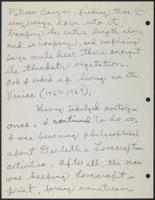 Potrero Canyon, finding three
easy ways down into it,
tramping its entire length alone
and in company, and surprising
large mule deer there amongst
the thickety vegetation.
And I ended up living in the
Venice (1967-1969).
Having indulged nostalgia
once, I continued to do so,
I was becoming philosophical
about Derleth's Lovecraft
activities. After all the man
was keeping Lovecraft in
print, forcing mainstream